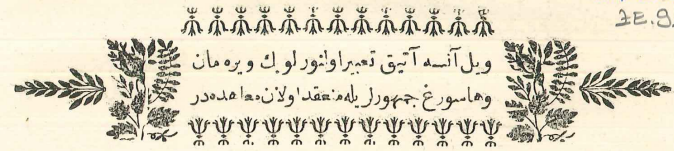 ZE.9
ويل آنسه آتيق تعبير اولنور لوبك و بره مان
و هامبورغ جمهورلريله منعقد اولان معاهده در